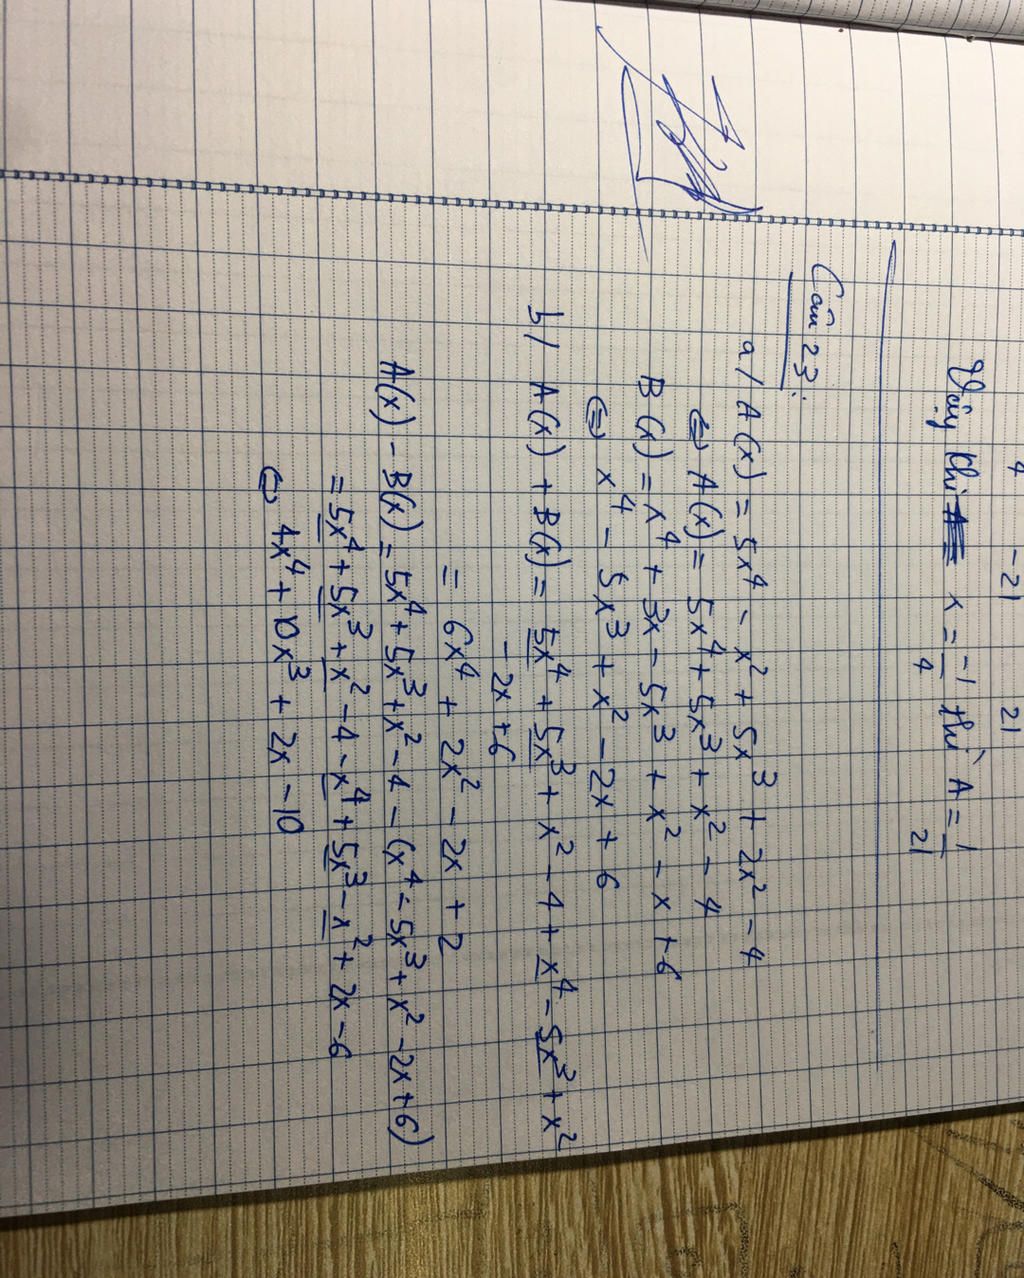 4 -21 21
Vậy khi x = -1/4 thì A = 1/21
Câu 23:
a/ A(x) = 5x⁴ - x² + 5x³ + 2x² - 4
⇔ A(x) = 5x⁴ + 5x³ + x² - 4
B(x) = x⁴ + 3x - 5x³ + x² - x + 6
⇔ x⁴ - 5x³ + x² - 2x + 6
b/ A(x) + B(x) = 5x⁴ + 5x³ + x² - 4 + x⁴ - 5x³ + x²
- 2x + 6
= 6x⁴ + 2x² - 2x + 2
A(x) - B(x) = 5x⁴ + 5x³ + x² - 4 - (x⁴ - 5x³ + x² - 2x + 6)
= 5x⁴ + 5x³ + x² - 4 - x⁴ + 5x³ - x² + 2x - 6
⇔ 4x⁴ + 10x³ + 2x - 10